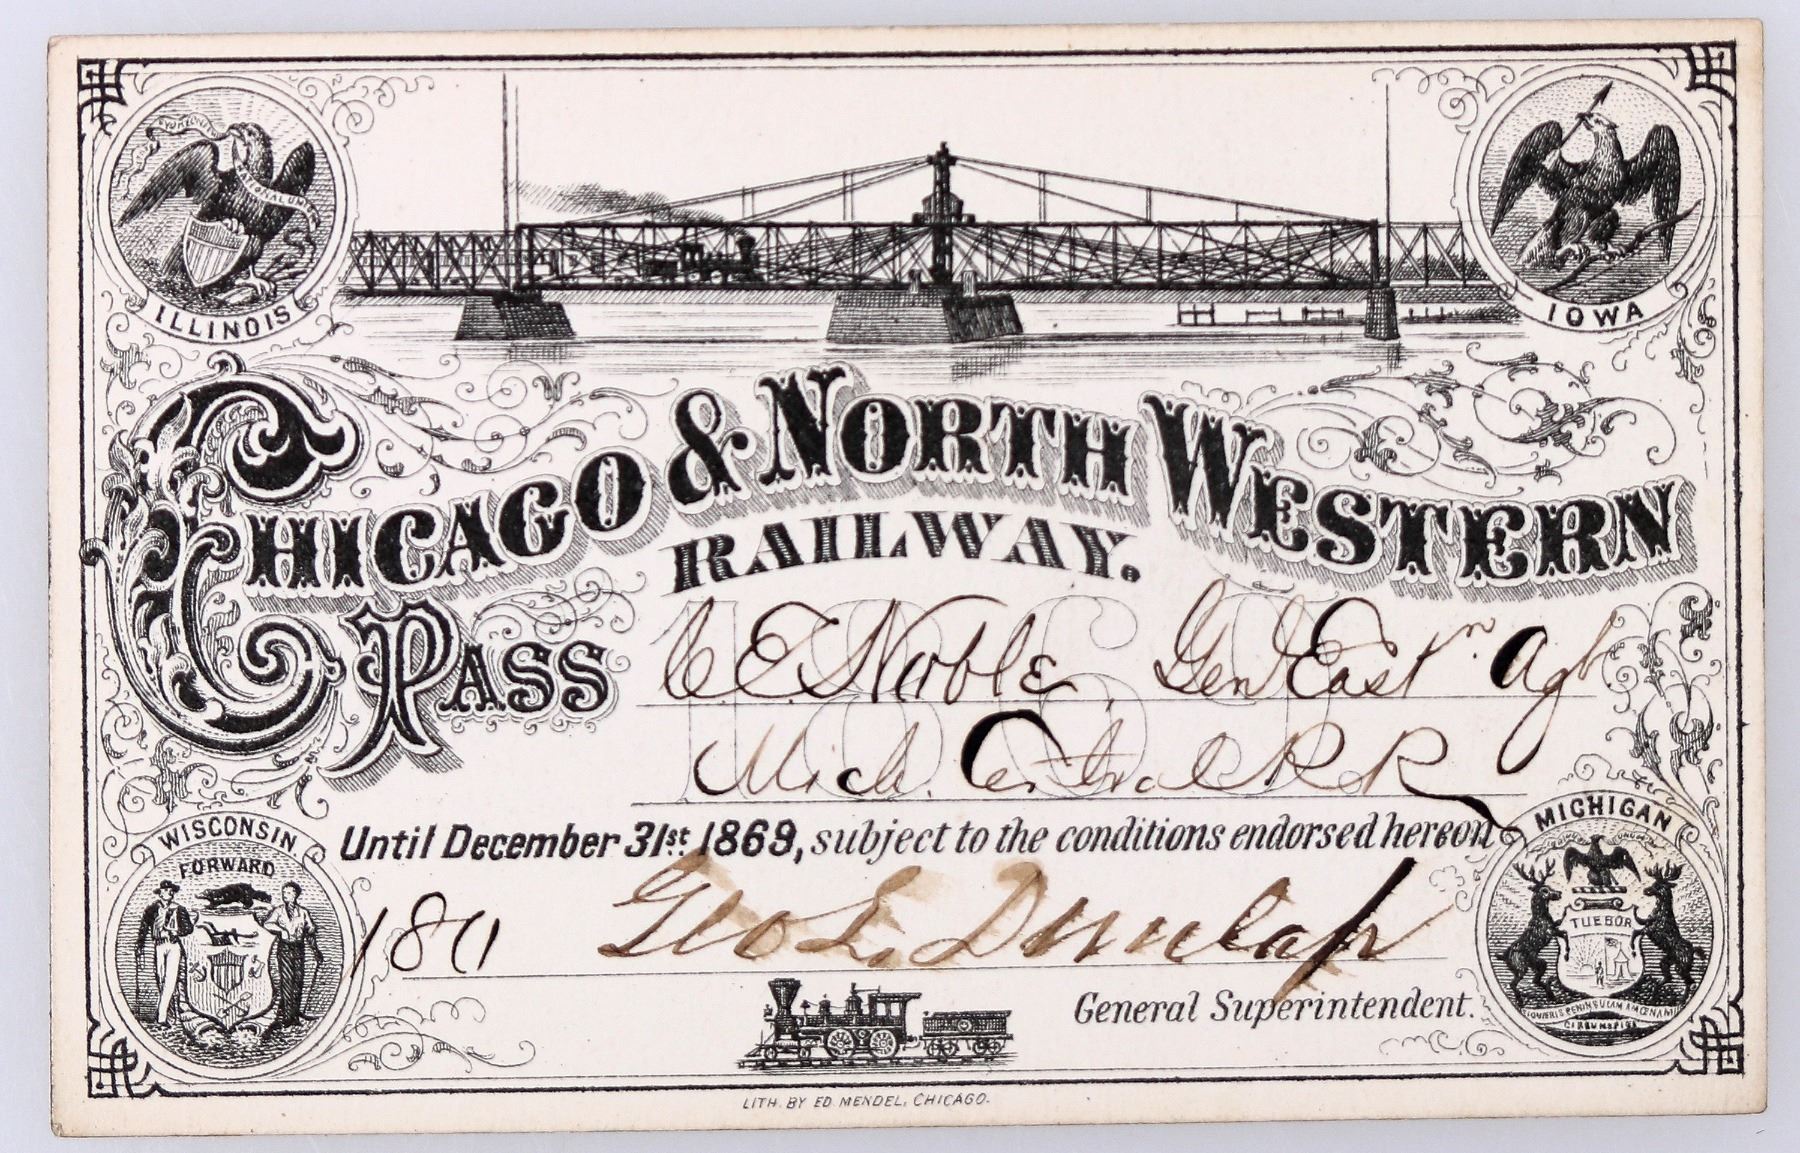 ILLINOIS
IOWA
CHICAGO & NORTH WESTERN
RAILWAY.
PASS
1869
C E Noble Gen'l East'n Agt
Mich. Central R R
Until December 31st 1869, subject to the conditions endorsed hereon
WISCONSIN
FORWARD
MICHIGAN
TUEBOR
Geo L. Dunlap
General Superintendent.
LITH. BY ED. MENDEL, CHICAGO.